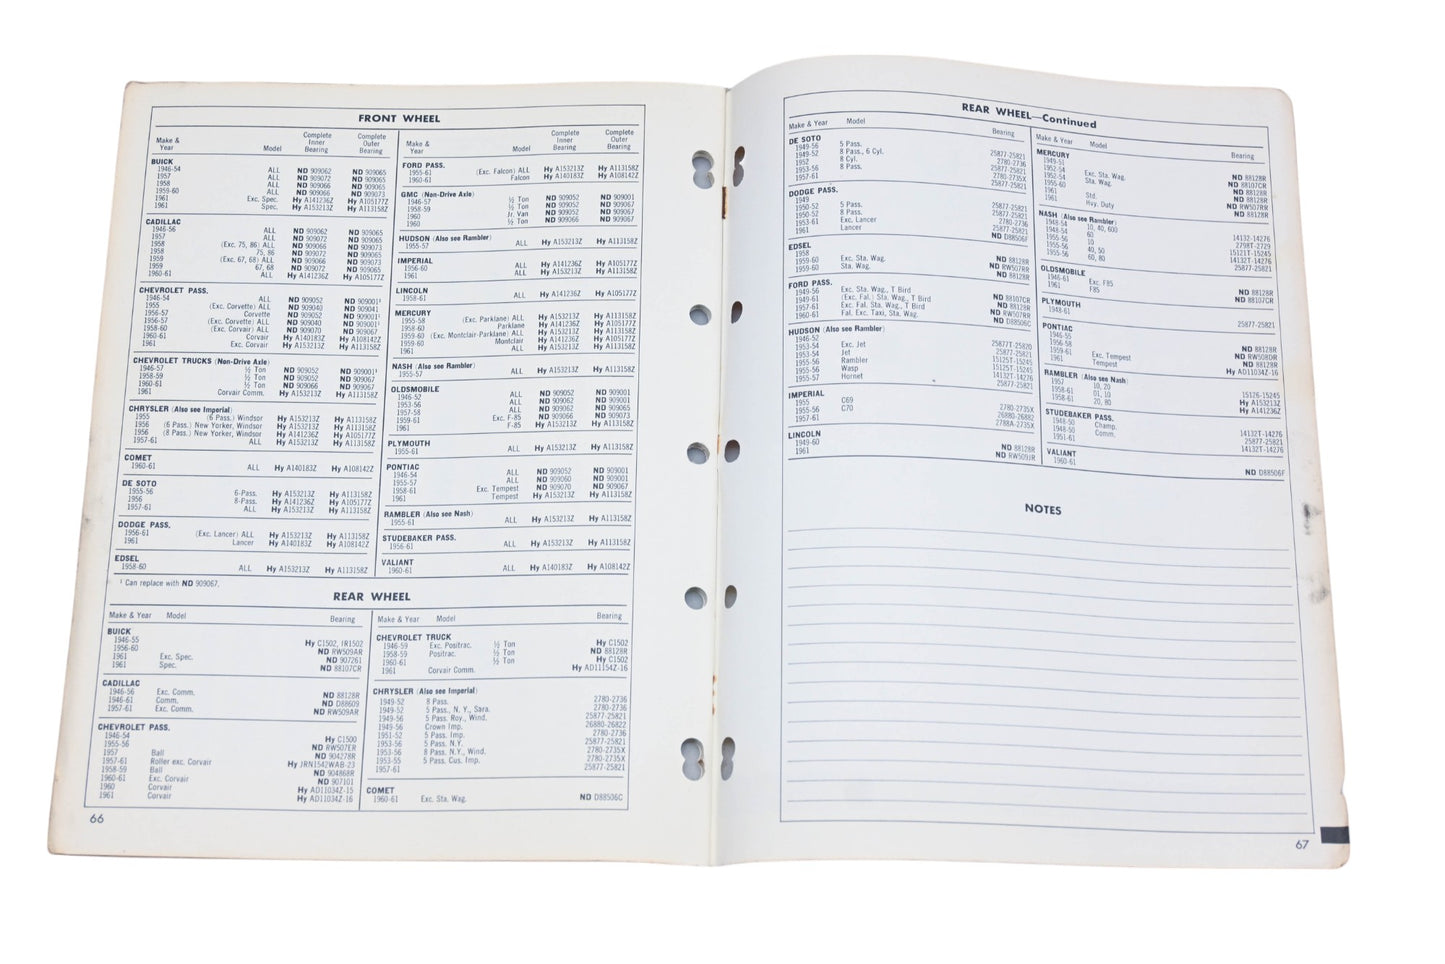 FRONT WHEEL
Make & Year Model Complete Inner Bearing Complete Outer Bearing
BUICK
1946-54 ALL ND 909062 ND 909065
1957 ALL ND 909072 ND 909065
1958 ALL ND 909066 ND 909065
1959-60 ALL ND 909066 ND 909073
1961 Exc. Spec. Hy A141236Z Hy A105177Z
1961 Spec. Hy A153213Z Hy A113158Z
CADILLAC
1946-56 ALL ND 909062 ND 909065
1957 ALL ND 909072 ND 909065
1958 (Exc. 75, 86) ALL ND 909066 ND 909073
1958 75, 86 ND 909072 ND 909065
1959 (Exc. 67, 68) ALL ND 909066 ND 909073
1959 67, 68 ND 909072 ND 909065
1960-61 ALL Hy A141236Z Hy A105177Z
CHEVROLET PASS.
1946-54 ALL ND 909052 ND 909001¹
1955 (Exc. Corvette) ALL ND 909040 ND 909041
1956-57 Corvette ND 909052 ND 909001¹
1956-57 (Exc. Corvette) ALL ND 909040 ND 909001¹
1958-60 (Exc. Corvair) ALL ND 909070 ND 909067
1960-61 Corvair Hy A140183Z Hy A108142Z
1961 Exc. Corvair Hy A153213Z Hy A113158Z
CHEVROLET TRUCKS (Non-Drive Axle)
1946-57 ½ Ton ND 909052 ND 909001¹
1958-59 ½ Ton ND 909052 ND 909067
1960-61 ½ Ton ND 909066 ND 909067
1961 Corvair Comm. Hy A153213Z Hy A113158Z
CHRYSLER (Also see Imperial)
1955 (6 Pass.) Windsor Hy A153213Z Hy A113158Z
1956 (6 Pass.) New Yorker, Windsor Hy A153213Z Hy A113158Z
1956 (8 Pass.) New Yorker, Windsor Hy A141236Z Hy A105177Z
1957-61 ALL Hy A153213Z Hy A113158Z
COMET
1960-61 ALL Hy A140183Z Hy A108142Z
DE SOTO
1955-56 6-Pass. Hy A153213Z Hy A113158Z
1956 8-Pass. Hy A141236Z Hy A105177Z
1957-61 ALL Hy A153213Z Hy A113158Z
DODGE PASS.
1956-61 (Exc. Lancer) ALL Hy A153213Z Hy A113158Z
1961 Lancer Hy A140183Z Hy A108142Z
EDSEL
1958-60 ALL Hy A153213Z Hy A113158Z
¹ Can replace with ND 909067.
Make & Year Model Complete Inner Bearing Complete Outer Bearing
FORD PASS.
1955-61 (Exc. Falcon) ALL Hy A153213Z Hy A113158Z
1960-61 Falcon Hy A140183Z Hy A108142Z
GMC (Non-Drive Axle)
1946-57 ½ Ton ND 909052 ND 909001
1958-59 ½ Ton ND 909052 ND 909067
1960 Jr. Van ND 909052 ND 909067
1960 ½ Ton ND 909066 ND 909067
HUDSON (Also see Rambler)
1955-57 ALL Hy A153213Z Hy A113158Z
IMPERIAL
1956-60 ALL Hy A141236Z Hy A105177Z
1961 ALL Hy A153213Z Hy A113158Z
LINCOLN
1958-61 ALL Hy A141236Z Hy A105177Z
MERCURY
1955-58 (Exc. Parklane) ALL Hy A153213Z Hy A113158Z
1958-60 Parklane Hy A141236Z Hy A105177Z
1959-60 (Exc. Montclair-Parklane) ALL Hy A153213Z Hy A113158Z
1959-60 Montclair Hy A141236Z Hy A105177Z
1961 ALL Hy A153213Z Hy A113158Z
NASH (Also see Rambler)
1955-57 ALL Hy A153213Z Hy A113158Z
OLDSMOBILE
1946-52 ALL ND 909052 ND 909001
1953-56 ALL ND 909062 ND 909001
1957-58 ALL ND 909062 ND 909065
1959-61 Exc. F-85 ND 909066 ND 909073
1961 F-85 Hy A153213Z Hy A113158Z
PLYMOUTH
1955-61 ALL Hy A153213Z Hy A113158Z
PONTIAC
1946-54 ALL ND 909052 ND 909001
1955-57 ALL ND 909060 ND 909001
1958-61 Exc. Tempest ND 909070 ND 909067
1961 Tempest Hy A153213Z Hy A113158Z
RAMBLER (Also see Nash)
1955-61 ALL Hy A153213Z Hy A113158Z
STUDEBAKER PASS.
1956-61 ALL Hy A153213Z Hy A113158Z
VALIANT
1960-61 ALL Hy A140183Z Hy A108142Z
REAR WHEEL
Make & Year Model Bearing
BUICK
1946-55 Hy C1502, IR1502
1956-60 ND RW509AR
1961 Exc. Spec. ND 907261
1961 Spec. ND 88107CR
CADILLAC
1946-56 Exc. Comm. ND 88128R
1946-61 Comm. ND D88609
1957-61 Exc. Comm. ND RW509AR
CHEVROLET PASS.
1946-54 Hy C1500
1955-56 ND RW507ER
1957 Ball ND 904278R
1957-61 Roller exc. Corvair Hy JRN1542WAB-23
1958-59 Ball ND 904868R
1960-61 Exc. Corvair ND 907101
1960 Corvair Hy AD11034Z-15
1961 Corvair Hy AD11034Z-16
Make & Year Model Bearing
CHEVROLET TRUCK
1946-59 Exc. Positrac. ½ Ton Hy C1502
1958-59 Positrac. ½ Ton ND 88128R
1960-61 ½ Ton Hy C1502
1961 Corvair Comm. Hy AD11154Z-16
CHRYSLER (Also see Imperial)
1949-52 8 Pass. 2780-2736
1949-52 5 Pass., N. Y., Sara. 2780-2736
1949-56 5 Pass. Roy., Wind. 25877-25821
1949-56 Crown Imp. 26880-26822
1951-52 5 Pass. Imp. 2780-2736
1953-56 5 Pass. N.Y. 25877-25821
1953-56 8 Pass. N.Y., Wind. 2780-2735X
1953-55 5 Pass. Cus. Imp. 2780-2735X
1957-61 25877-25821
COMET
1960-61 Exc. Sta. Wag. ND D88506C
66
REAR WHEEL—Continued
Make & Year Model Bearing
DE SOTO
1949-56 5 Pass. 25877-25821
1949-52 8 Pass., 6 Cyl. 2780-2736
1952 8 Cyl. 25877-25821
1953-56 8 Pass. 2780-2735X
1957-61 25877-25821
DODGE PASS.
1949 25877-25821
1950-52 5 Pass. 25877-25821
1950-52 8 Pass. 2780-2736
1953-61 Exc. Lancer 25877-25821
1961 Lancer ND D88506F
EDSEL
1958 ND 88128R
1959-60 Exc. Sta. Wag. ND RW507RR
1959-60 Sta. Wag. ND 88128R
FORD PASS.
1949-56 Exc. Sta. Wag., T Bird ND 88107CR
1949-61 (Exc. Fal.) Sta. Wag., T Bird ND 88128R
1957-61 Exc. Fal. Sta. Wag., T Bird ND RW507RR
1960-61 Fal. Exc. Taxi, Sta. Wag. ND D88506C
HUDSON (Also see Rambler)
1946-52 25877T-25820
1953-54 Exc. Jet 25877-25821
1953-54 Jet 15125T-15245
1955-56 Rambler 15125T-15245
1955-56 Wasp 14132T-14276
1955-57 Hornet 25877-25821
IMPERIAL
1955 C69 2780-2735X
1955-56 C70 26880-26882
1957-61 2788A-2735X
LINCOLN
1949-60 ND 88128R
1961 ND RW509JR
Make & Year Model Bearing
MERCURY
1949-51 ND 88128R
1952-54 Exc. Sta. Wag. ND 88107CR
1952-54 Sta. Wag. ND 88128R
1955-60 ND 88128R
1961 Std. ND RW507RR
1961 Hvy. Duty ND 88128R
NASH (Also see Rambler)
1948-54 10, 40, 600 14132-14276
1948-54 60 2798T-2729
1955-56 10 15121T-15245
1955-56 40, 50 14132T-14276
1955-56 60, 80 25877-25821
OLDSMOBILE
1946-61 Exc. F85 ND 88128R
1961 F85 ND 88107CR
PLYMOUTH
1948-61 25877-25821
PONTIAC
1946-55 ND 88128R
1956-58 ND RW508DR
1959-61 Exc. Tempest ND 88128R
1961 Tempest Hy AD11034Z-16
RAMBLER (Also see Nash)
1957 10, 20 15126-15245
1958-61 01, 10 Hy A153213Z
1958-61 20, 80 Hy A141236Z
STUDEBAKER PASS.
1948-50 Champ. 14132T-14276
1948-50 Comm. 25877-25821
1951-61 14132T-14276
VALIANT
1960-61 ND D88506F
NOTES
67